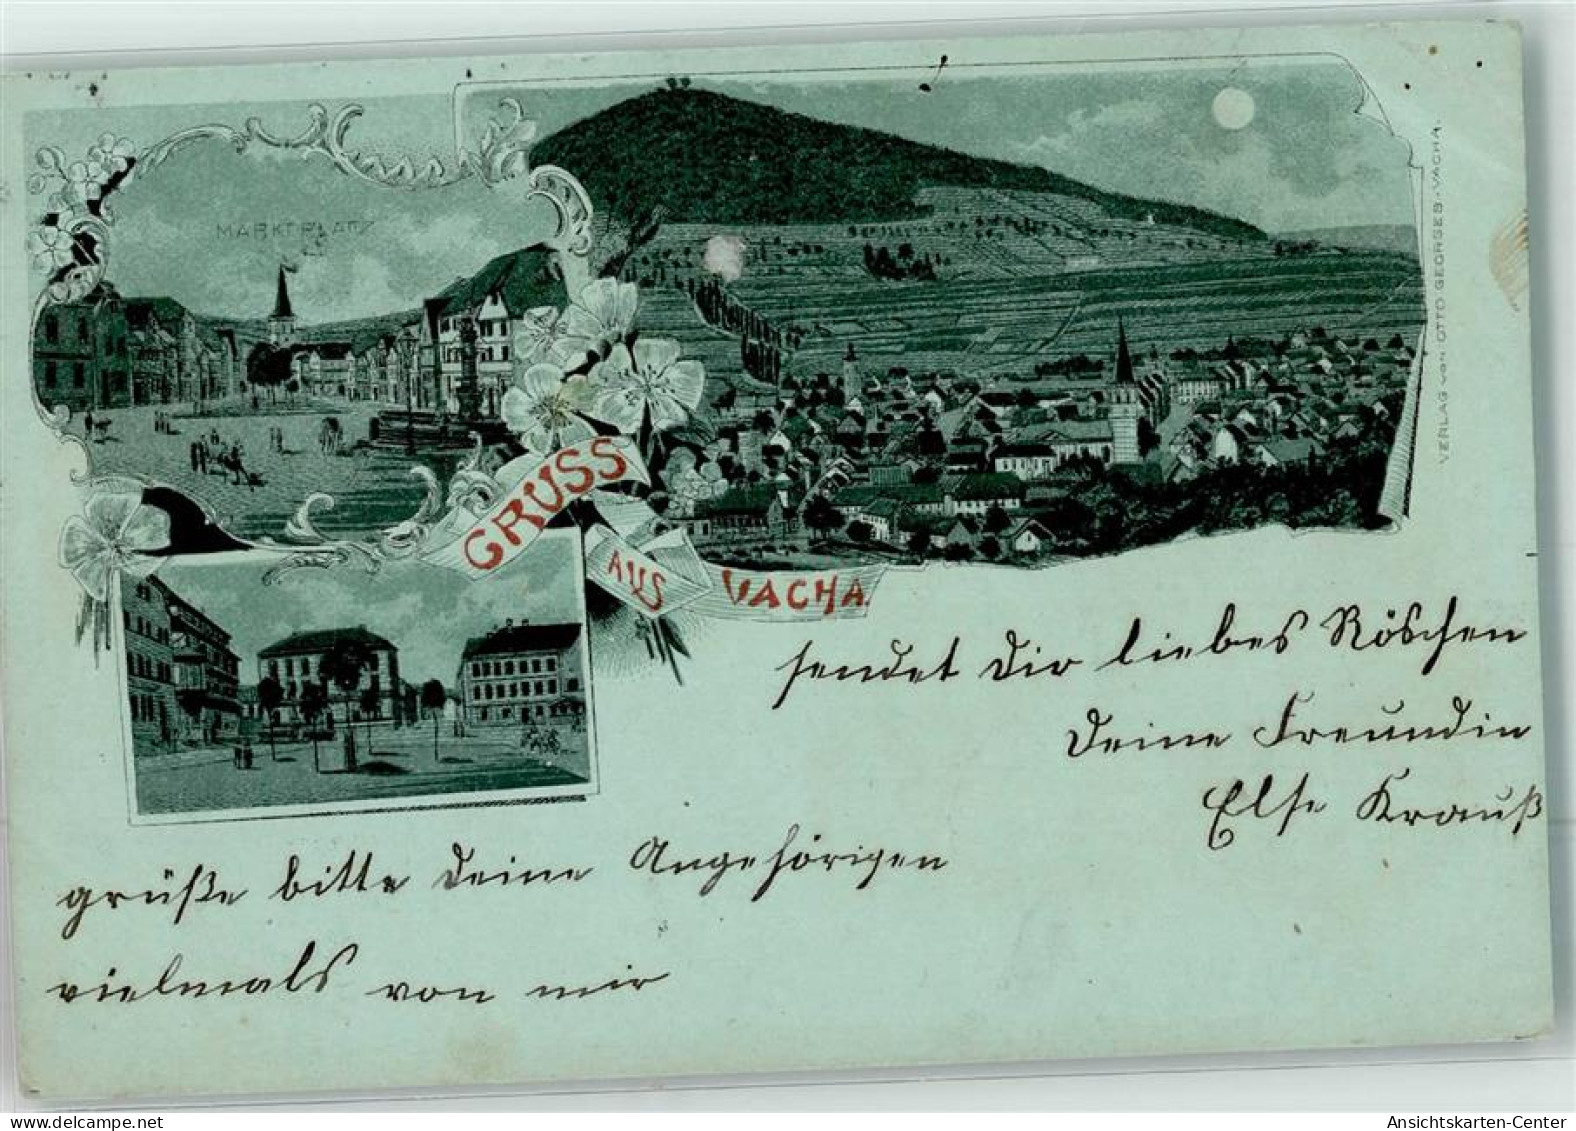 MARKTPLATZ
GRUSS
AUS
VACHA.
VERLAG von OTTO GEORGES-VACHA.
sendet dir liebes Röschen
deine Freundin
Else Krauß
grüße bitte deine Angehörigen
vielmals von mir
Ansichtskarten-Center